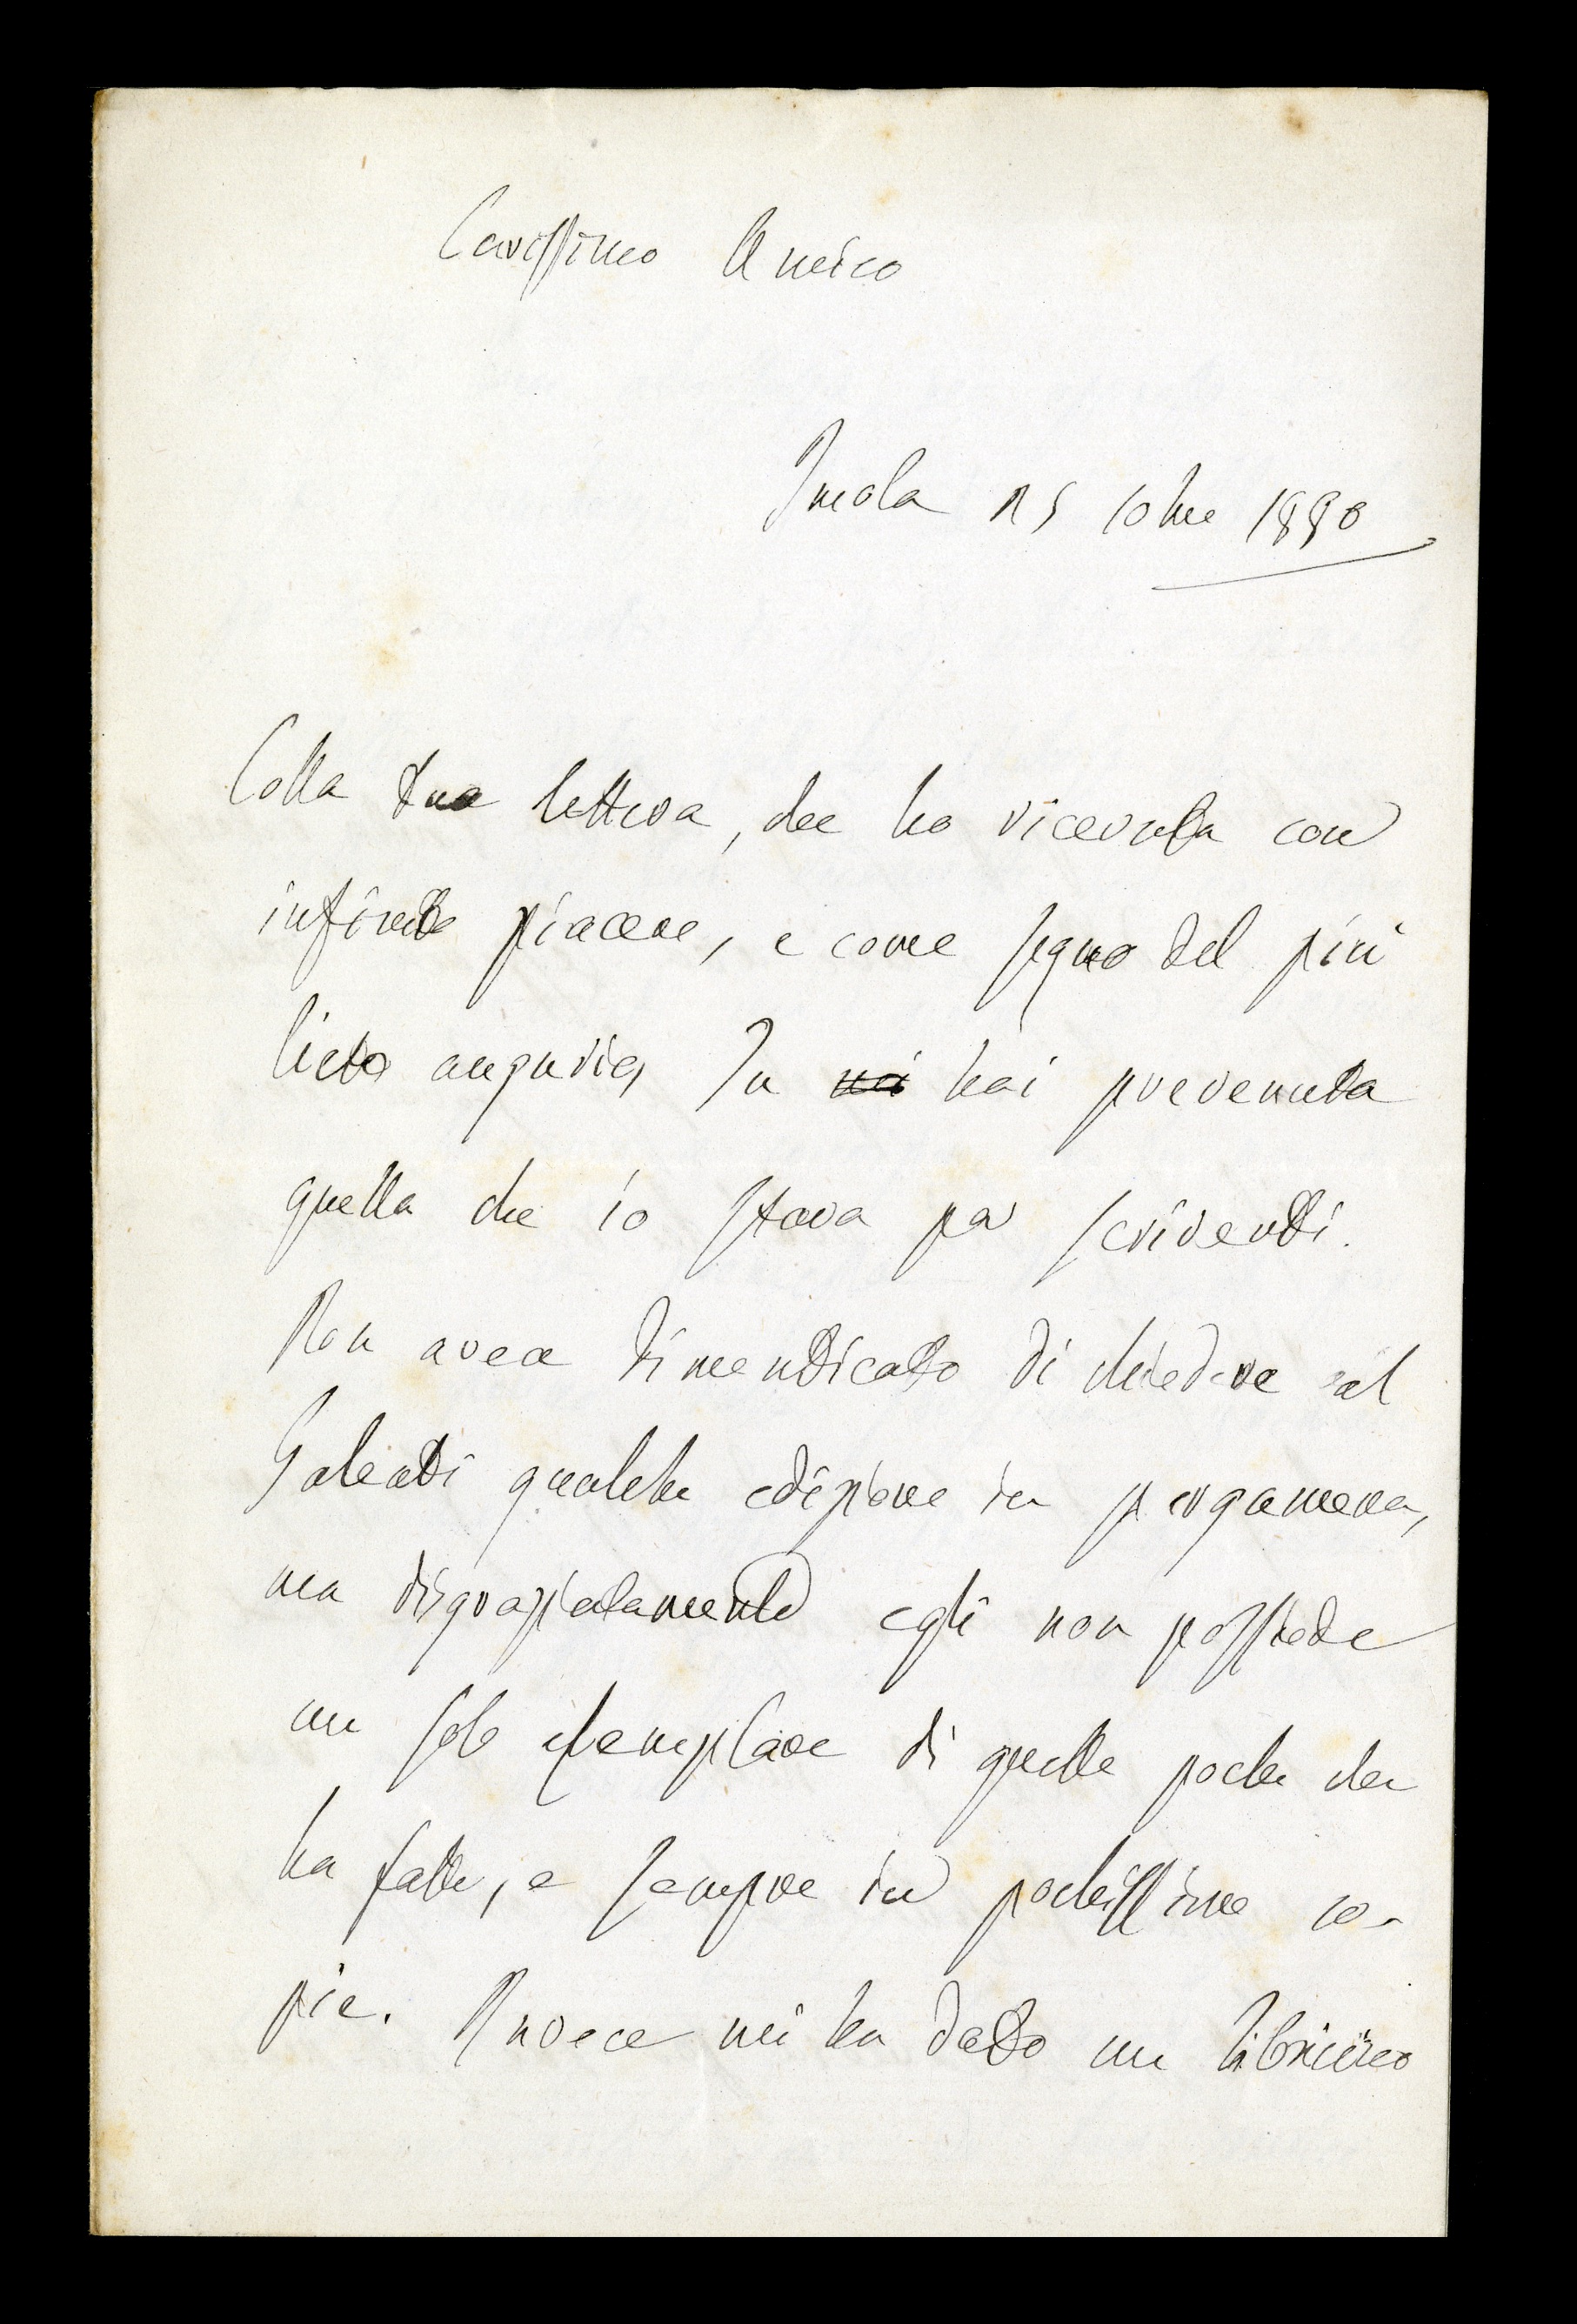 Carissimo Amico
Imola 25 10bre 1880
Colla tua lettera, che ho ricevuta con
infinito piacere, e come segno del più
lieto augurio, Tu hai prevenuta
quella che io stava per scriverti.
Non avea dimenticato di chiedere al
Galeati qualche edizione in pergamena,
ma disgraziatamente egli non possiede
un solo esemplare di quelle poche che
ha fatte, e sempre in pochissime co-
pie. Invece mi ha dato un libricino